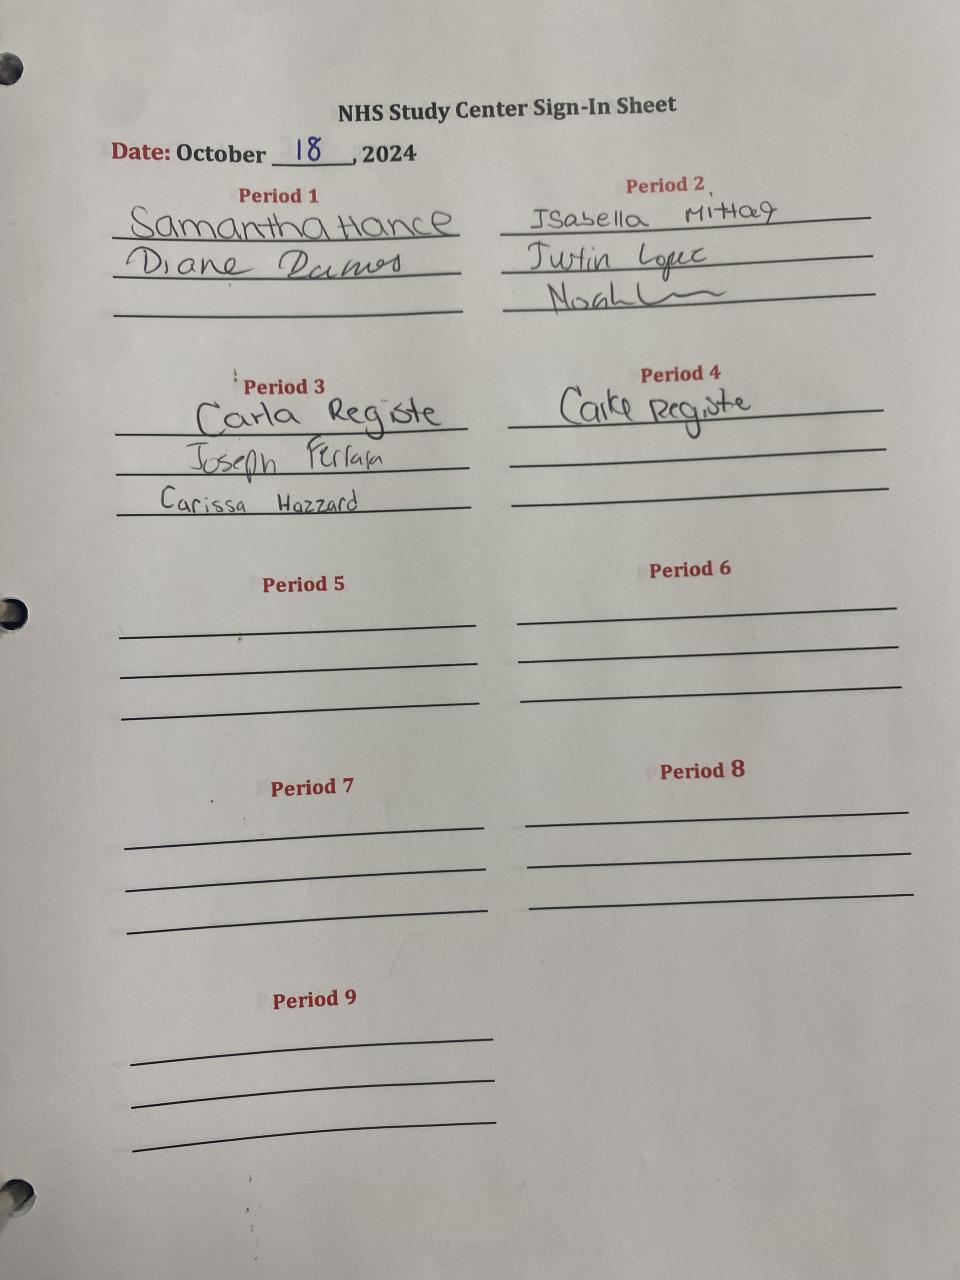 NHS Study Center Sign-In Sheet
Date: October 18, 2024
Period 1
Samantha Hance
Diane Dumes
Period 2
Isabella Mittag
Justin Lopez
Noah
Period 3
Carla Registe
Joseph Ferrara
Carissa Hazzard
Period 4
Registe
Period 5
Period 6
Period 7
Period 8
Period 9